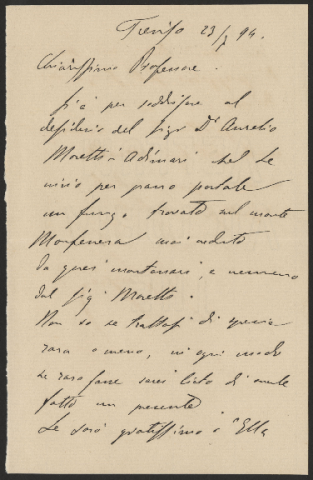 Treviso 23/X 94.
Chiarissimo Professore.
per soddisfare al
desiderio del Sigr Dr Aurelio
Moretti Adimari che Le
invio per pacco postale
un fungo trovato sul monte
Monfenera mai veduto
da quei montanari, e nemmeno
dal Sigr Moretti.
Non so se trattasi di specie
rara o meno, in ogni modo
se rara fosse sarei lieto di averle
fatto un presente
Le sarò gratissimo s'Ella